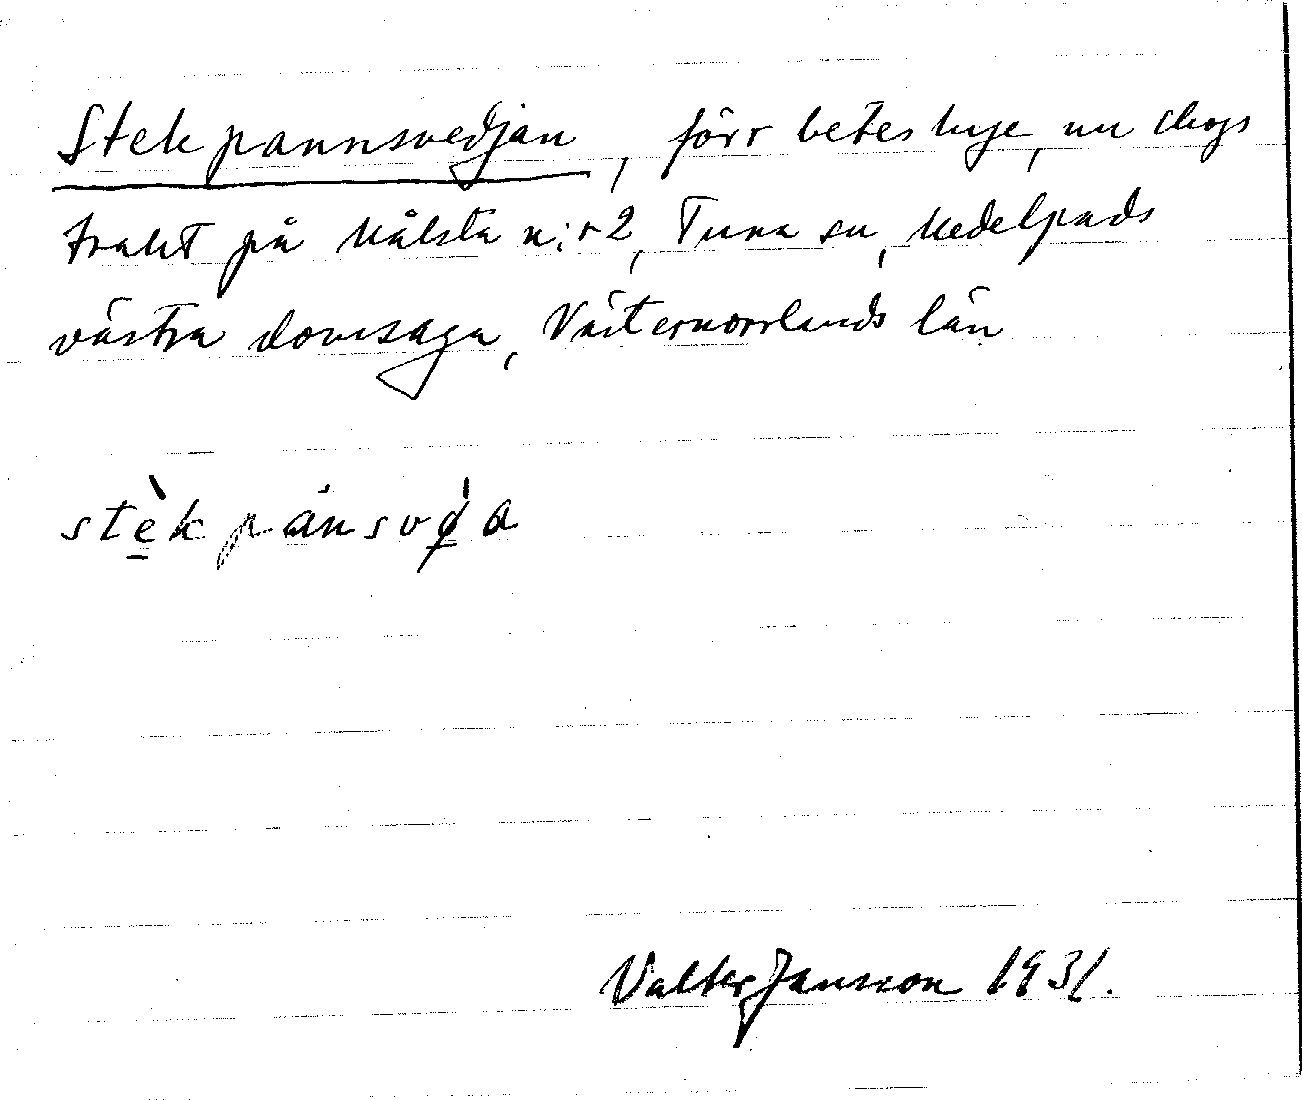 Stekpannsvedjan, förr beteshage, nu skogs
trakt på Målsta n:r 2, Tuna sn, Medelpads
västra domsaga, Västernorrlands län
Valter Jansson 1931.